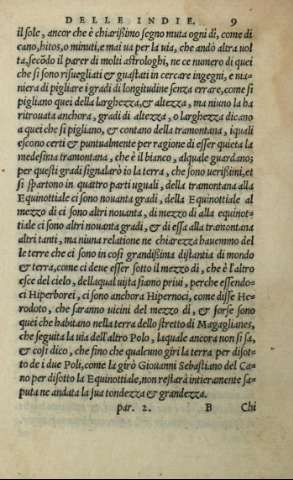 DELLE INDIE. 9
il sole, ancor che è chiarißimo segno muta ogni dì, come di
cano, hitos, o minuti, e mai ua per la uia, che andò altra uol
ta, secõdo il parer di molti astrologhi, ne ce numero di quei
che si sono risuegliati & guastati in cercare ingegni, e ma-
niera di pigliare i gradi di longitudine senza errare, come si
pigliano quei della larghezza, & altezza, ma niuno la ha
ritrouata anchora, gradi di altezza, o larghezza dicano
a quei che si pigliano, & contano della tramontana, iquali
escono certi & puntualmente per ragione di esser quieta la
medesima tramontana, che è il bianco, alquale guardano;
per questi gradi signalarò io la terra, che sono uerißimi, et
si spartono in quattro parti uguali, della tramontana alla
Equinottiale ci sono nouanta gradi, della Equinottiale al
mezzo dì ci sono altri nouanta, di mezzo dì alla equinot-
tiale ci sono altri nouanta gradi, & di essa alla tramontana
altri tanti, ma niuna relatione ne chiarezza hauemmo del
le terre che ci sono in cosi grandißima distantia di mondo
& terra, come ci deue esser sotto il mezzo dì, che è l'altro
esce del cielo, dellaqual uista siamo priui, perche essendo-
ci Hiperborei, ci sono anchora Hipernoci, come disse He-
rodoto, che saranno uicini del mezzo dì, & forse sono
quei che habitano nella terra dello stretto di Magaglianes,
che seguita la uia dell'altro Polo, laquale ancora non si sa,
& cosi dico, che fino che qualcuno giri la terra per disot-
to de i due Poli, come la girò Giouanni Sebastiano del Ca-
no per disotto la Equinottiale, non restarà intieramente sa-
puta ne andata la sua tondezza & grandezza.
par. 2. B Chi